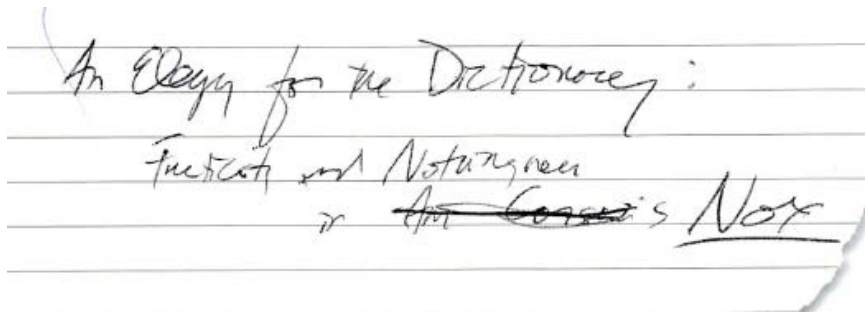 An Elegy for the Dictionary:
and Nothingness
in Anne Carson's Nox